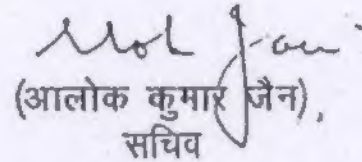 (आलोक कुमार जैन),
सचिव